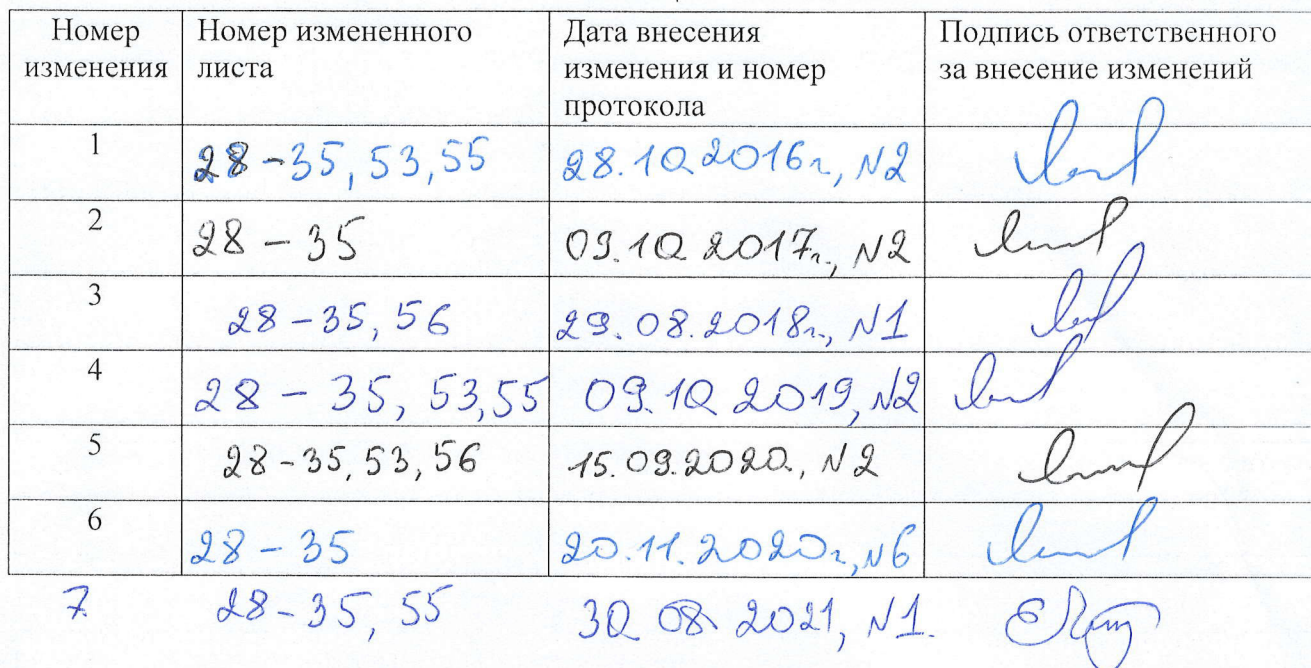 Номер изменения Номер измененного листа Дата внесения изменения и номер протокола Подпись ответственного за внесение изменений
1 28-35, 53, 55 28.10.2016г., N2
2 28 - 35 09.10.2017г., N2
3 28-35, 56 29.08.2018г., N1
4 28 - 35, 53, 55 09.10.2019, N2
5 28-35, 53, 56 15.09.2020., N2
6 28 - 35 20.11.2020г., N6
7 28-35, 55 30.08.2021, N1.